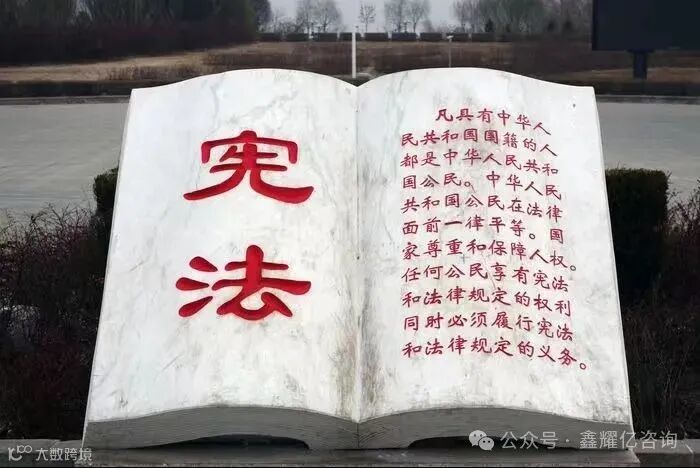 宪
法
凡具有中华人
民共和国国籍的人
都是中华人民共和
国公民。中华人民
共和国公民在法律
面前一律平等。国
家尊重和保障人权。
任何公民享有宪法
和法律规定的权利
同时必须履行宪法
和法律规定的义务。
公众号 · 鑫耀亿咨询
大数跨境